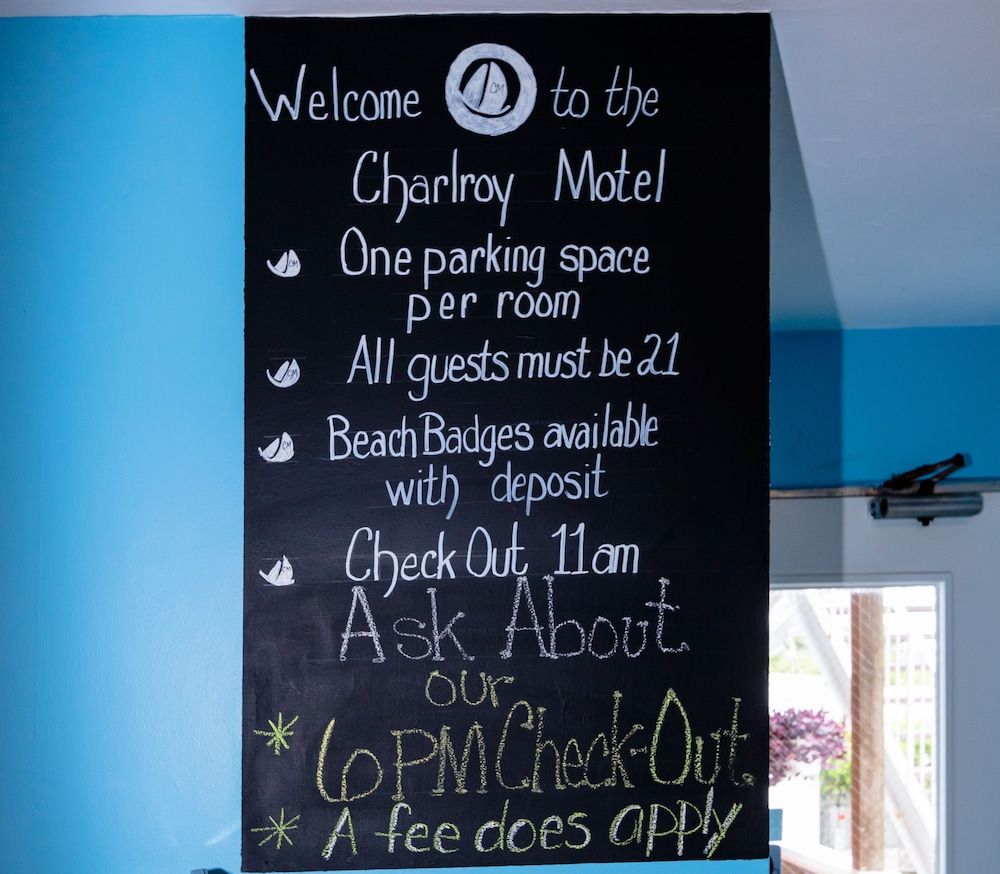 Welcome CM to the
Charlroy Motel
CM One parking space
per room
CM All guests must be 21
CM Beach Badges available
with deposit
CM Check Out 11am
Ask About
our
* 6PM Check-Out.
* A fee does apply